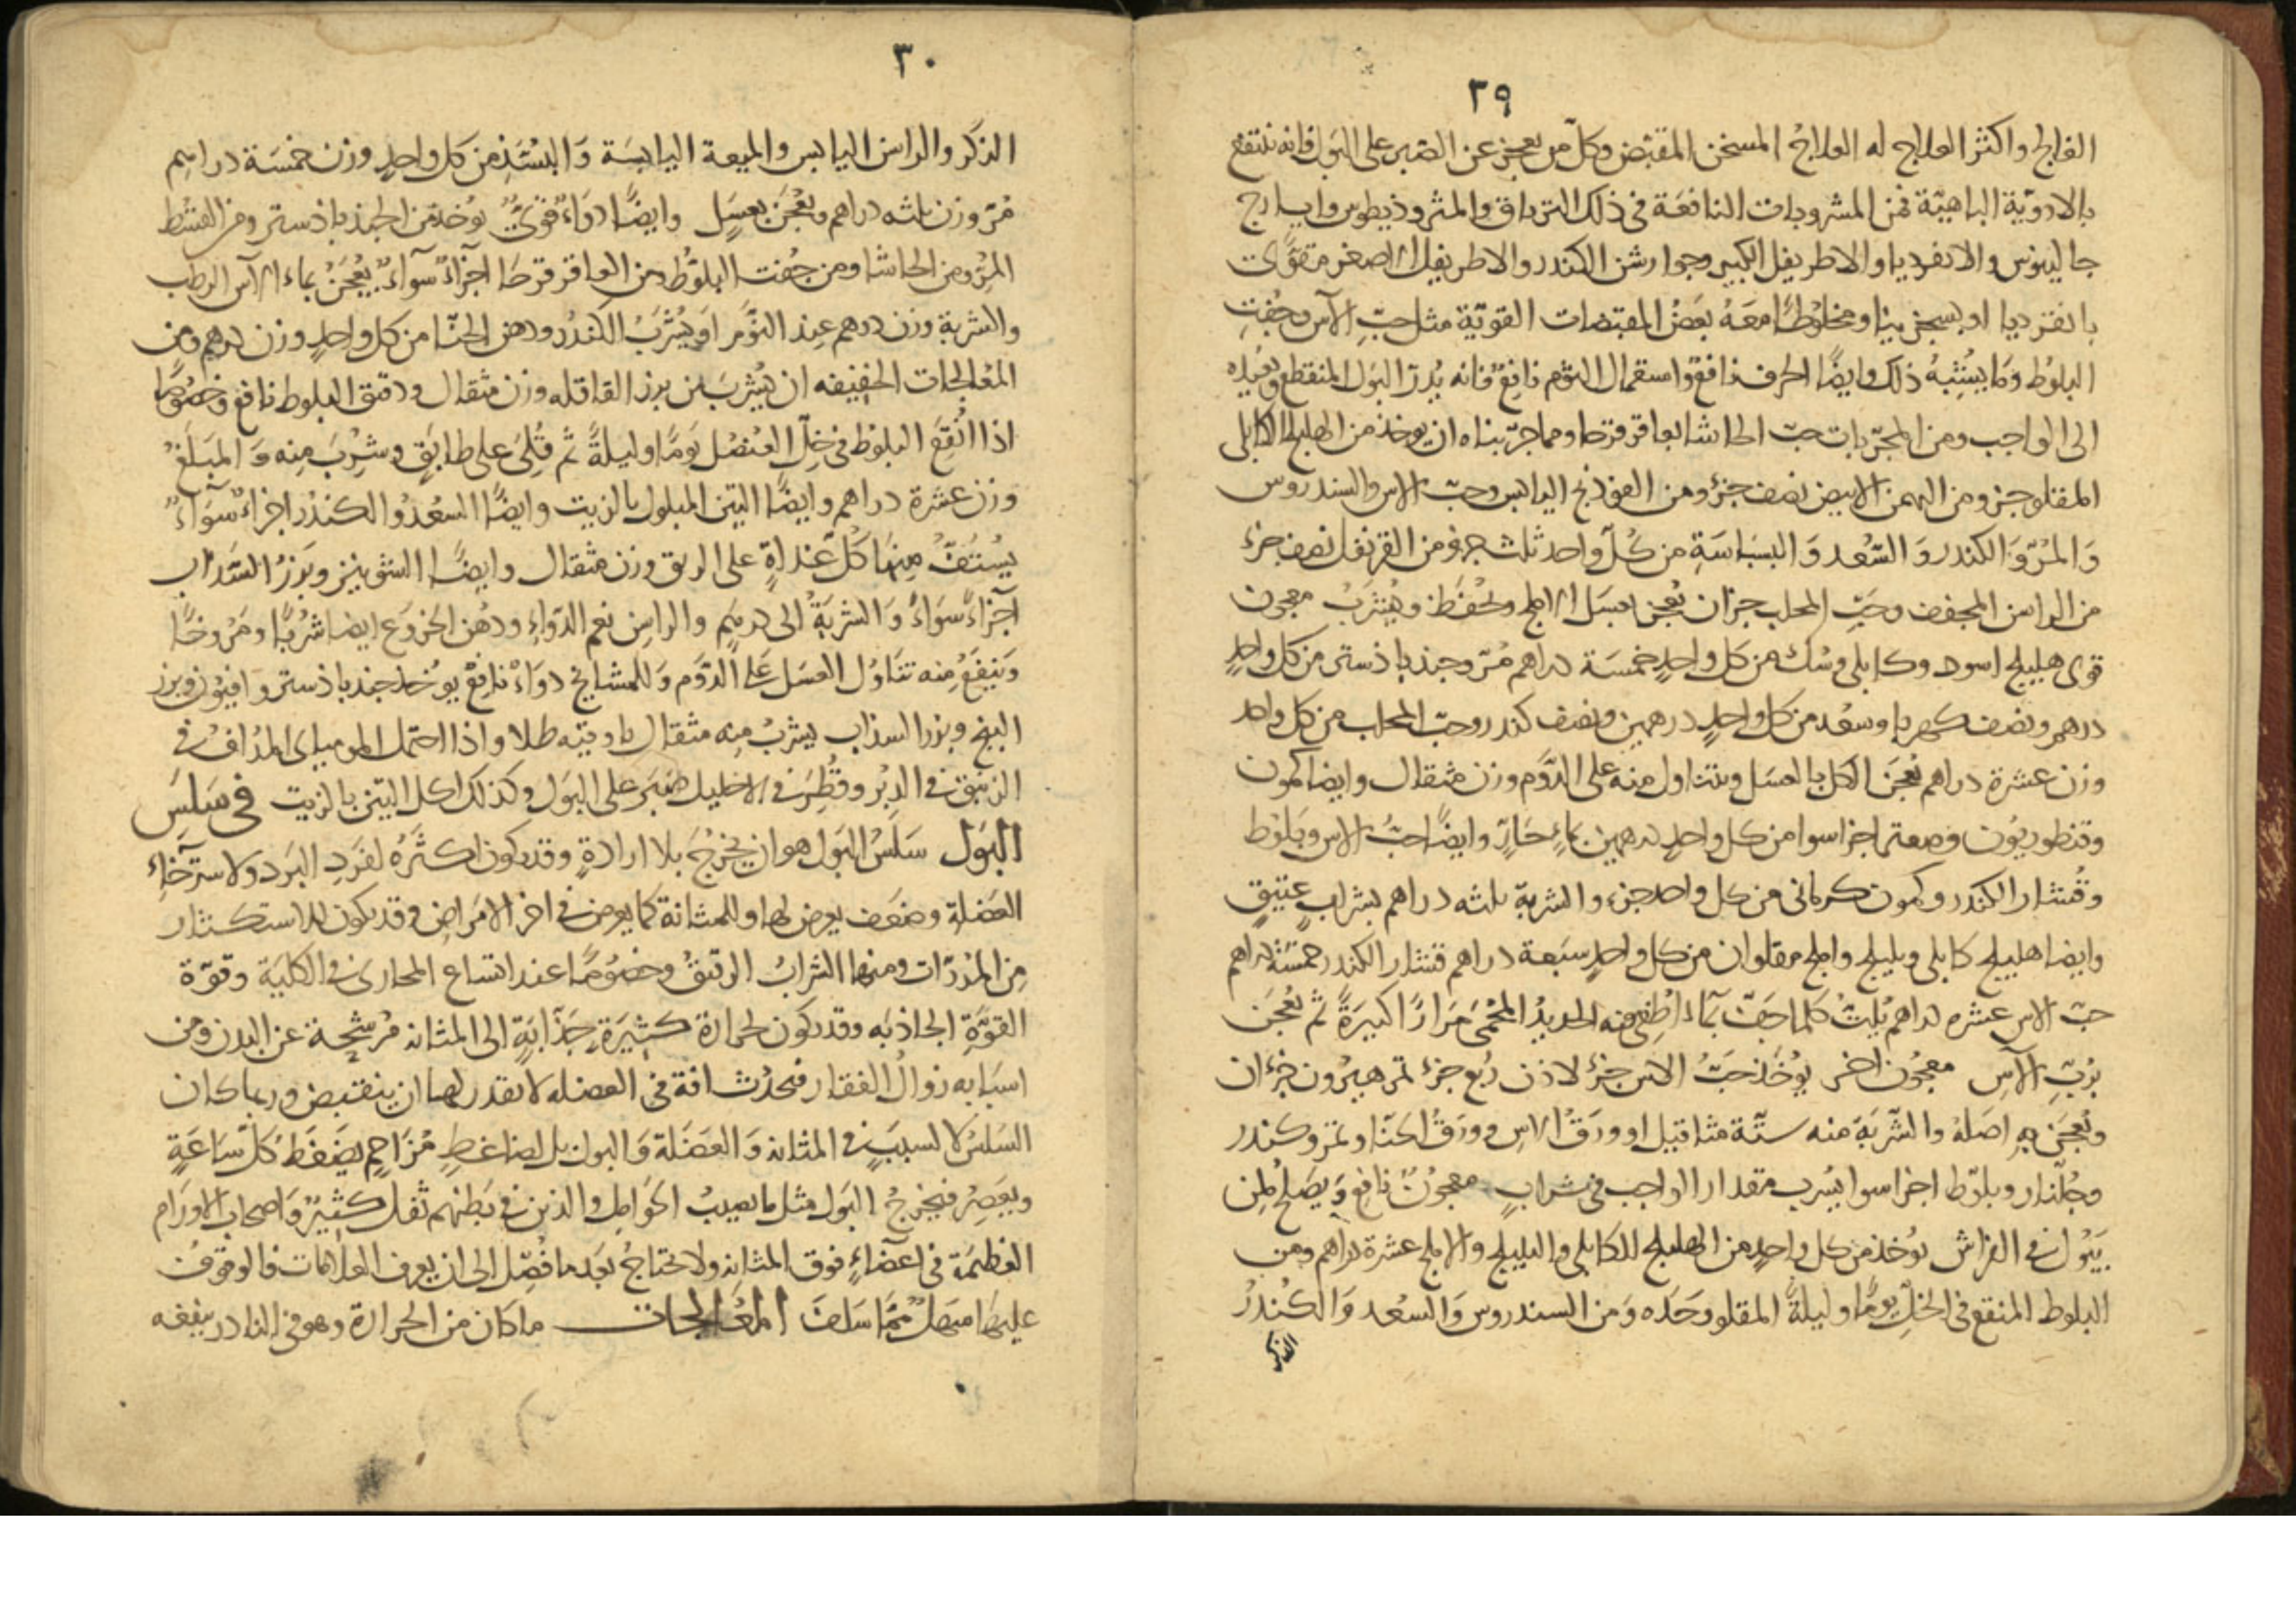 ٢٩
الفالج واكثر العلاج له العلاج المسخن المقبض وكل من يعجز عن الصبر على البول فانه ينتفع
بالادوية الباهية فمن المشروبات النافعة في ذلك الترياق والمثروذيطوس وايارج
جالينوس والانفرديا والاطريفل الكبير وجوارشن الكندر والاطريفل الاصغر مقوى
بانقرديا او بسجزينا ومخلوطا معه بعض المقبضات القوية مثل حب الآس وجفت
البلوط وما يشبه ذلك وايضا الحرف نافع واستعمال الثوم نافع فانه يدر البول المنقطع ويعيده
الى الواجب ومن المجربات حب الحاشا بعاقرقرحا ومما جربناه ان يوخذ من الهليلج الكابلي
المقلو جزو ومن البهمن الابيض نصف جزؤ ومن الفوذنج اليابس وحب الاس والسندروس
وَالمُرّ وَالكندر وَالسّعد وَالبسبَاسَةِ من كُلّ واحد ثلث جزؤ ومن القرنفل نصف جزء
من الراسن المجفف وحَبّ المحلب جزان يُعجن بعسَل الاملج ويُحفَظ ويُشرَبُ معجون
قوى هليلج اسود وكابلى وسُك من كل واحدٍ خمسَة دراهم مُرّ وجندباذستر من كل واحدٍ
درهم ونصف كهربا وسعُد من كل واحدٍ درهمين ونصف كندر وحبّ المحلب من كل واحد
وزن عشرة دراهم يُعجَن الكل بالعسَل ويتناول منه على الدَّوم وزن مثقال وايضا كمون
وقنطوريُون وصعتر اجزا سوا من كل واحدٍ درهمين بماءٍ حَارّ وايضًا حبّ الاس وبَلوط
وقُشار الكندر وكمون كرمانى من كل واحد جزء والشربة ثلثه دراهم بشرابٍ عتيقٍ
وايضا هليلج كابلى وبليلج واملج مقلوان من كل واحدٍ سَبعة دراهم قشار الكندر خمسَة دراهم
حبّ الاس عشره دراهم يُلتّ كلما جَفّ بمَاءٍ اُطفئ فيه الحديدُ المُحْمَى مَرَارًا كبيرَةً ثم يُعجَن
بربّ الآسِ معجُون اخر يُوخَذ حَبُّ الاس جزءُ لاذن رُبع جزء تمر هيرُون جُزءان
وتُعجَن بهِ اصَلهُ والشّربَة منه ستّة مثاقيل او ورَقُ الاسِ وورَقُ الحنّا وتمر وكندر
وجُلّنار وبلوّط اجزا سوا يشرب مقدار الواجب في شرابٍ معجُونٌ نافِع وَيصَلحُ لمن
يَبُول في الفراش يوُخذ من كل واحدٍ من الهليلج الكابلى والبليلج والاملج عشرة دراهم ومن
البلوط المنقع في الخلّ يومًا وليلةً المقلو وحَدَه وَمن السندروس وَالسُعد وَالكُندُر
الذكر
٣٠
الذكَر والراسن اليابس والميعة اليابسَة وَالبُسّذ من كل واحدٍ وزن خمسَة دراهم
مُرّ وزن ثلثه دراهم ويُعْجَن بعسَلٍ وايضًا دوَاءٌ قوىٌّ يُوخذ من الجندباذستر ومن القسط
المرّ ومن الحاشا ومن جُفت البلوّط ومن العاقر قرحَا اجزآءٌ سوآءٌ يُعْجَنُ بماء الآس الرطب
والشربة وزن درهم عند النوّم او يُشْرَبُ الكندرُ ودهن الحنّا من كل واحدٍ وزن درهم ومن
المعَالجات الخفيفه ان يُشربَ من بزر القاقله وزن مثقال ودقيق البلوط نافع وخصُوصًا
اذا اُنْقِعَ البلوط في خَلّ العُنصُل يَومًا وليلةً ثم قُلِىَ على طابَقٍ وشُرِبَ مِنه وَالمَبلَغُ
وزن عشرة دراهم وايضًا التين المبلول بالزيت وايضًا السعُدُ والكندُر اجزاءٌ سَوآءٌ
يُسْتَفُّ مِنهَا كُل غداةٍ على الريق وزن مثقال وايضًا الشونيز وبَزرُ السَّدَاب
آجزاءً سَوَاءً وَالشربَةُ الى درهمٍ والراسِن نعم الدّوَاءِ ودُهن الخروَع ايضا شُربًا ومَرْوخًا
وَينفَعُ مِنه تَنَاوُل العسَل عَلَى الدّوَم وَللمشايخ دوَاءٌ نافِعٌ يوُخذ جندباذستر وَافيُون وبزر
البنج وبزر السذاب يشربُ مِنه مثقال باوقيّه طلا واذا احتمل الموميَاى المدُاف في
الزنبق في الدبُر وقُطِرَ في الاحليل صَبَرَ على البَول وكذلك اكل التين بالزيت في سَلسَ
البَول سَلَسُ البَول هو ان يخرُجَ بلا ارادةٍ وقد يكون اكثرَهُ لفرَطِ البرَد ولاسترخَاء
العضَلةِ وضعَف يعرض لها وللمثانة كما يعرض في اخر الامَراض وقد يكون للاستكثار
مِن المدُرّات ومنها الشرابُ الرقيقُ وخصُوصًا عند اتساع المجارى في الكليَة وقوّة
القوَّةِ الجاذبَه وقد يكون لحرارة كثيرَةٍ جَذّابَةٍ الى المثانه مُرشحة عن البدن ومن
اسبَابه زوالُ الفقار فيحدُث افة في العضله لا يقدر لها ان ينقبض وربما كان
السَلسُ لا لسببٍ في المثانه وَالعَضَلة وَالبول بل لضاغطٍ مُزاحِمٍ يضَغَط كلّ سَاعَةٍ
ويعَصِرُ فيخرجُ البَول مثل ما يصيبُ الحَوَامِل والذين في بَطنهم ثقل كثيرٌ وَاصحاب الاورَام
العَظيمَة في اعضَاءٍ فوق المثانه ولا يحتاجُ بعَد ما فُصّل الى ان يعرف العلامات فالوقوفُ
عليهَا سهلٌ ممّا سَلف المعُالجات ما كان من الحرارة وهو في النادر ينفعه